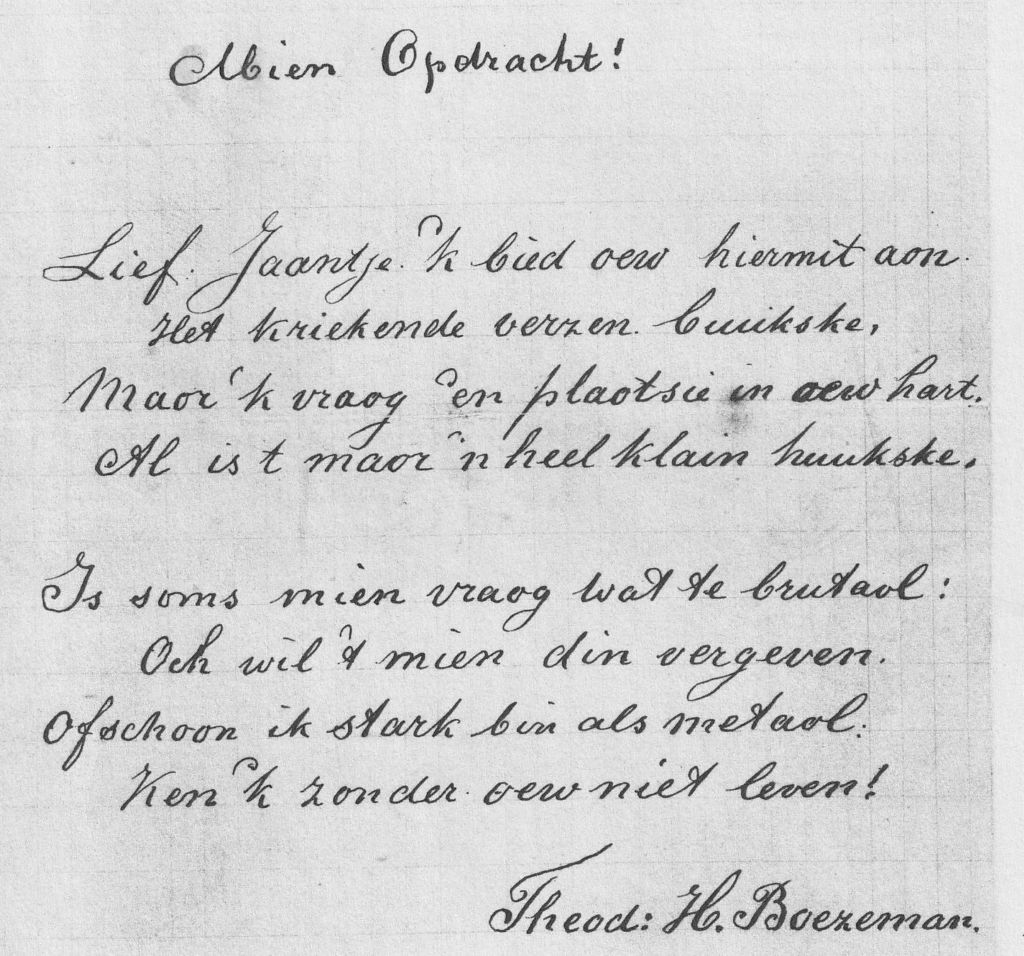 Mien Opdracht!
Lief. Jaantje. 'k bied oew hiermit aon.
Het kriekende verzen buukske,
Maor 'k vraog 'en plaotsie in oew hart.
Al is t maor 'n heel klain huukske,
Is soms mien vraog wat te brutaol:
Och wil 't mien din vergeven.
Ofschoon ik stark bin als metaol:
Ken 'k zonder oew niet leven!
Theod: H. Boezeman.